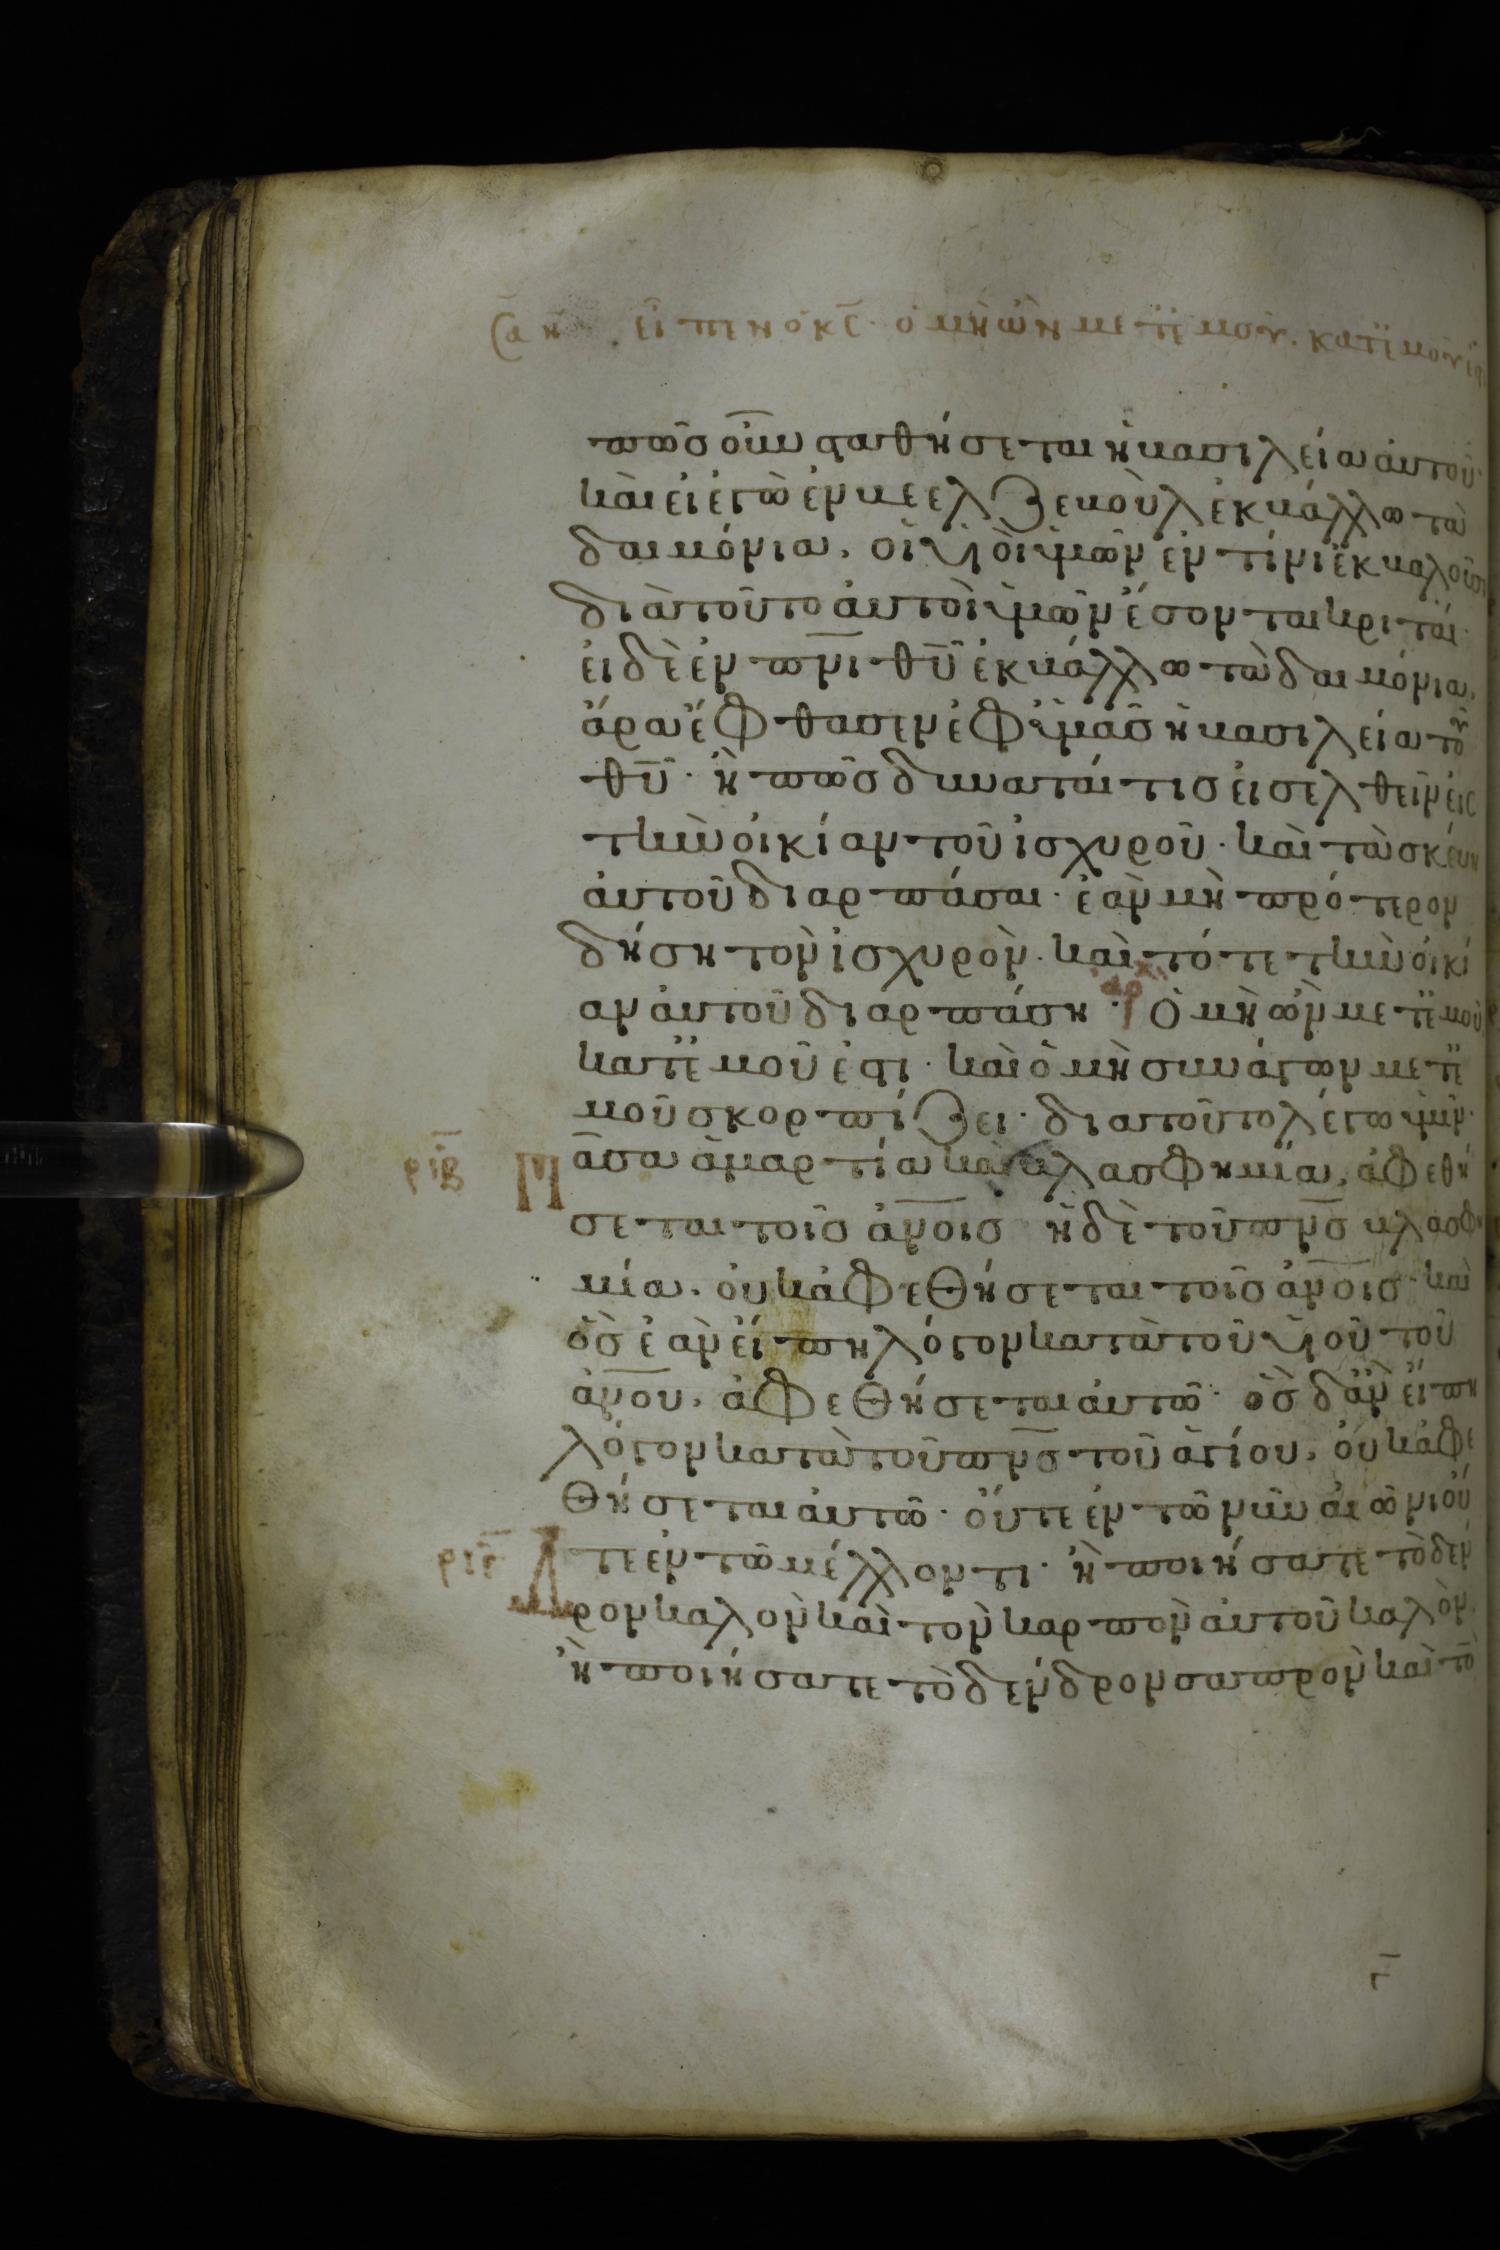 εἶπεν ὁ κ̅ς̅· ὁ μὴ ὢν μετ' ἐμοῦ. κατ' ἐμοῦ
πῶσ οὖν σταθήσεται ἡ βασιλεία αὐτοῦ·
καὶ εἰ ἐγὼ ἐν βεελζεβοὺλ ἐκβάλλω τὰ
δαιμόνια, οἱ υἱοὶ ὑμῶν ἐν τίνι ἐκβαλοῦσι
διὰ τοῦτο αὐτοὶ ὑμῶν ἔσονται κριταί·
εἰ δὲ ἐν π̅ν̅ι θ̅υ̅ ἐκβάλλω τὰ δαιμόνια,
ἄρα ἔφθασεν ἐφ' ὑμᾶσ ἡ βασιλεία τοῦ
θ̅υ̅· ἢ πῶσ δύναταί τισ εἰσελθεῖν εἰς
τὴν οἰκίαν τοῦ ἰσχυροῦ· καὶ τὰ σκεύη
αὐτοῦ διαρπάσαι· ἐὰν μὴ πρότερον
δήσῃ τὸν ἰσχυρὸν· καὶ τότε τὴν οἰκί
αρχ
αν αὐτοῦ διαρπάσῃ· Ὁ μὴ ὢν μετ' ἐμοῦ
κατ' ἐμοῦ ἐστι· καὶ ὁ μὴ συνάγων μετ' ἐ
μοῦ σκορπίζει· διατοῦτο λέγω ὑμῖν·
ρ̅ι̅β̅ Πᾶσα ἁμαρτία καὶ βλασφημία, ἀφεθή
σεται τοῖσ ἀ̅ν̅ο̅ισ ἡ δὲ τοῦ π̅ν̅σ̅ βλασφη
μία, οὐκ ἀφεθήσεται τοῖσ ἀ̅ν̅ο̅ισ· καὶ
ὃσ ἐὰν εἴπῃ λόγον κατὰ τοῦ υἱοῦ τοῦ
ἀ̅ν̅ο̅υ, ἀφεθήσεται αὐτῷ· ὃσ δ' ἂν εἴπῃ
λόγον κατὰ τοῦ π̅ν̅σ̅ τοῦ ἁγίου, οὐκ ἀφε
θήσεται αὐτῷ· οὔτε ἐν τῷ νῦν αἰῶνι οὔ
ρ̅ι̅γ̅ τε ἐν τῷ μέλλοντι· ἢ ποιήσατε τὸ δέν
Δρον καλὸν καὶ τὸν καρπὸν αὐτοῦ καλὸν·
ἢ ποιήσατε τὸ δένδρον σαπρὸν καὶ τὸ
γ̅